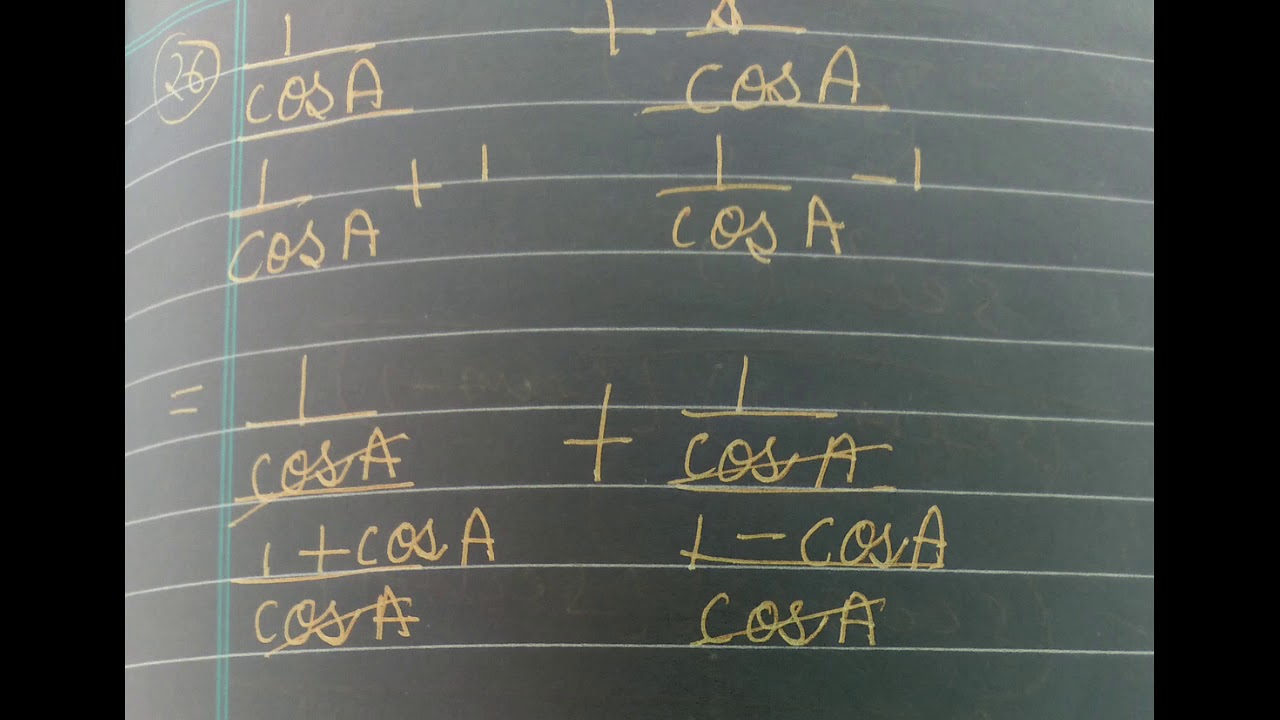 26 1 + 1
cos A cos A
1 + 1 1 - 1
cos A cos A
= 1 + 1
cos A cos A
1 + cos A 1 - cos A
cos A cos A